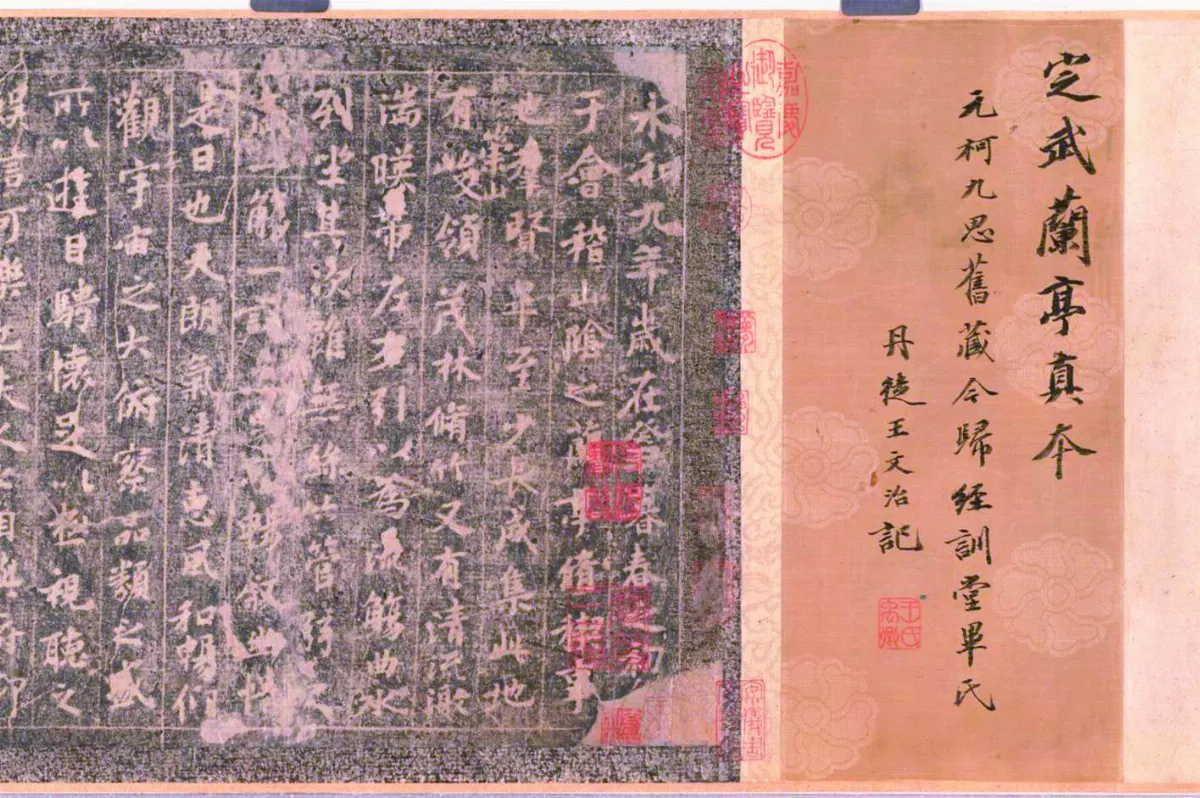 定武蘭亭真本
元柯九思舊藏今歸經訓堂畢氏
丹徒王文治記
王氏禹卿
嘉慶御覽之寶
永和九年歲在癸暮春之初
于會稽山陰之蘭亭脩禊事
也羣賢畢至少長咸集此地
有崇山峻領茂林脩竹又有清流激
湍暎帶左右引以為流觴曲水
列坐其次雖無絲竹管弦之
盛一觴一詠亦足以暢敘幽情
是日也天朗氣清惠風和暢仰
觀宇宙之大俯察品類之盛
所以遊目騁懷足以極視聽之
娛信可樂也夫人之相與俯仰